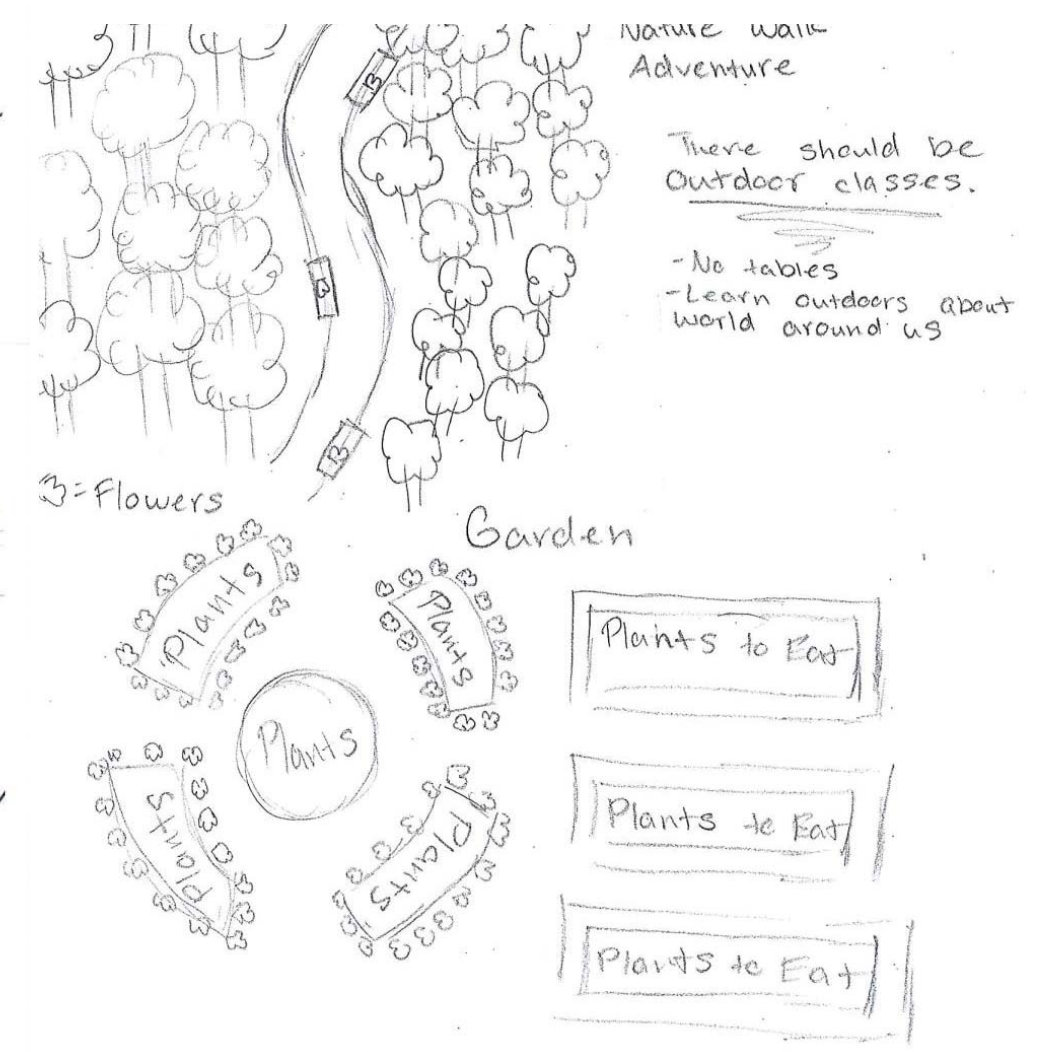 Nature Walk
Adventure
There should be
Outdoor classes.
- No tables
- Learn outdoors about
world around us
= Flowers
Garden
Plants
Plants
Plants
Plants
Plants
Plants to Eat
Plants to Eat
Plants to Eat